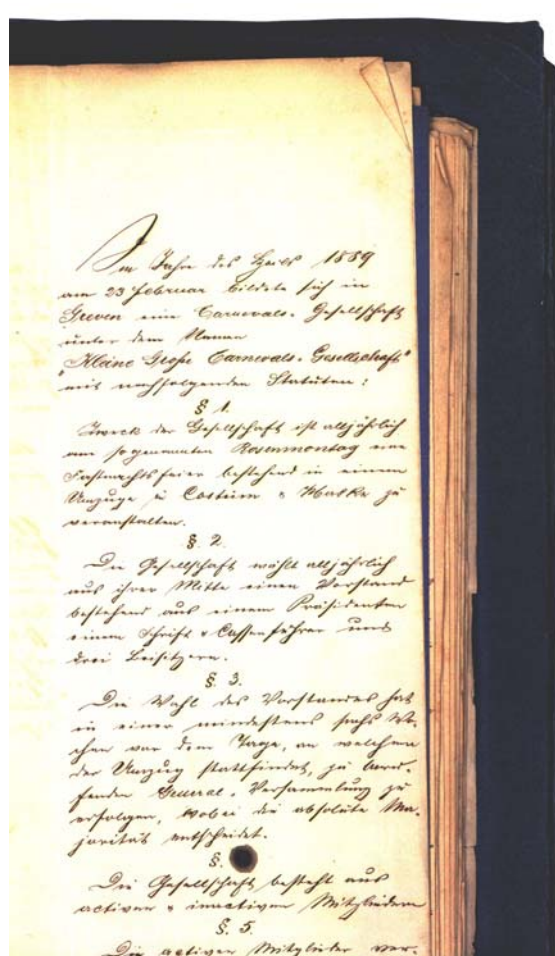 Im Jahre des Heils 1889
am 23 Februar bildete sich in
Greven eine Carnevals-Gesellschaft
unter dem Namen
"Kleine Große Carnevals-Gesellschaft"
mit nachfolgenden Statuten:
§ 1.
Zweck der Gesellschaft ist alljährlich
am sogenannten Rosenmontag eine
Fastnachtsfeier bestehend in einem
Umzuge in Costüm & Maske zu
veranstalten.
§. 2.
Die Gesellschaft wählt alljährlich
aus ihrer Mitte einen Vorstand
bestehend aus einem Präsidenten
einem Schrift & Cassenführer und
drei Beisitzern.
§. 3.
Die Wahl des Vorstandes hat
in einer mindestens sechs Wo-
chen vor dem Tage, an welchem
der Umzug stattfindet, zu beru-
fenden General-Versammlung zu
erfolgen, wobei die absolute Ma-
jorität entscheidet.
§.
Die Gesellschaft besteht aus
activen & inactiven Mitgliedern
§. 5.
Die activen Mitglieder ver-